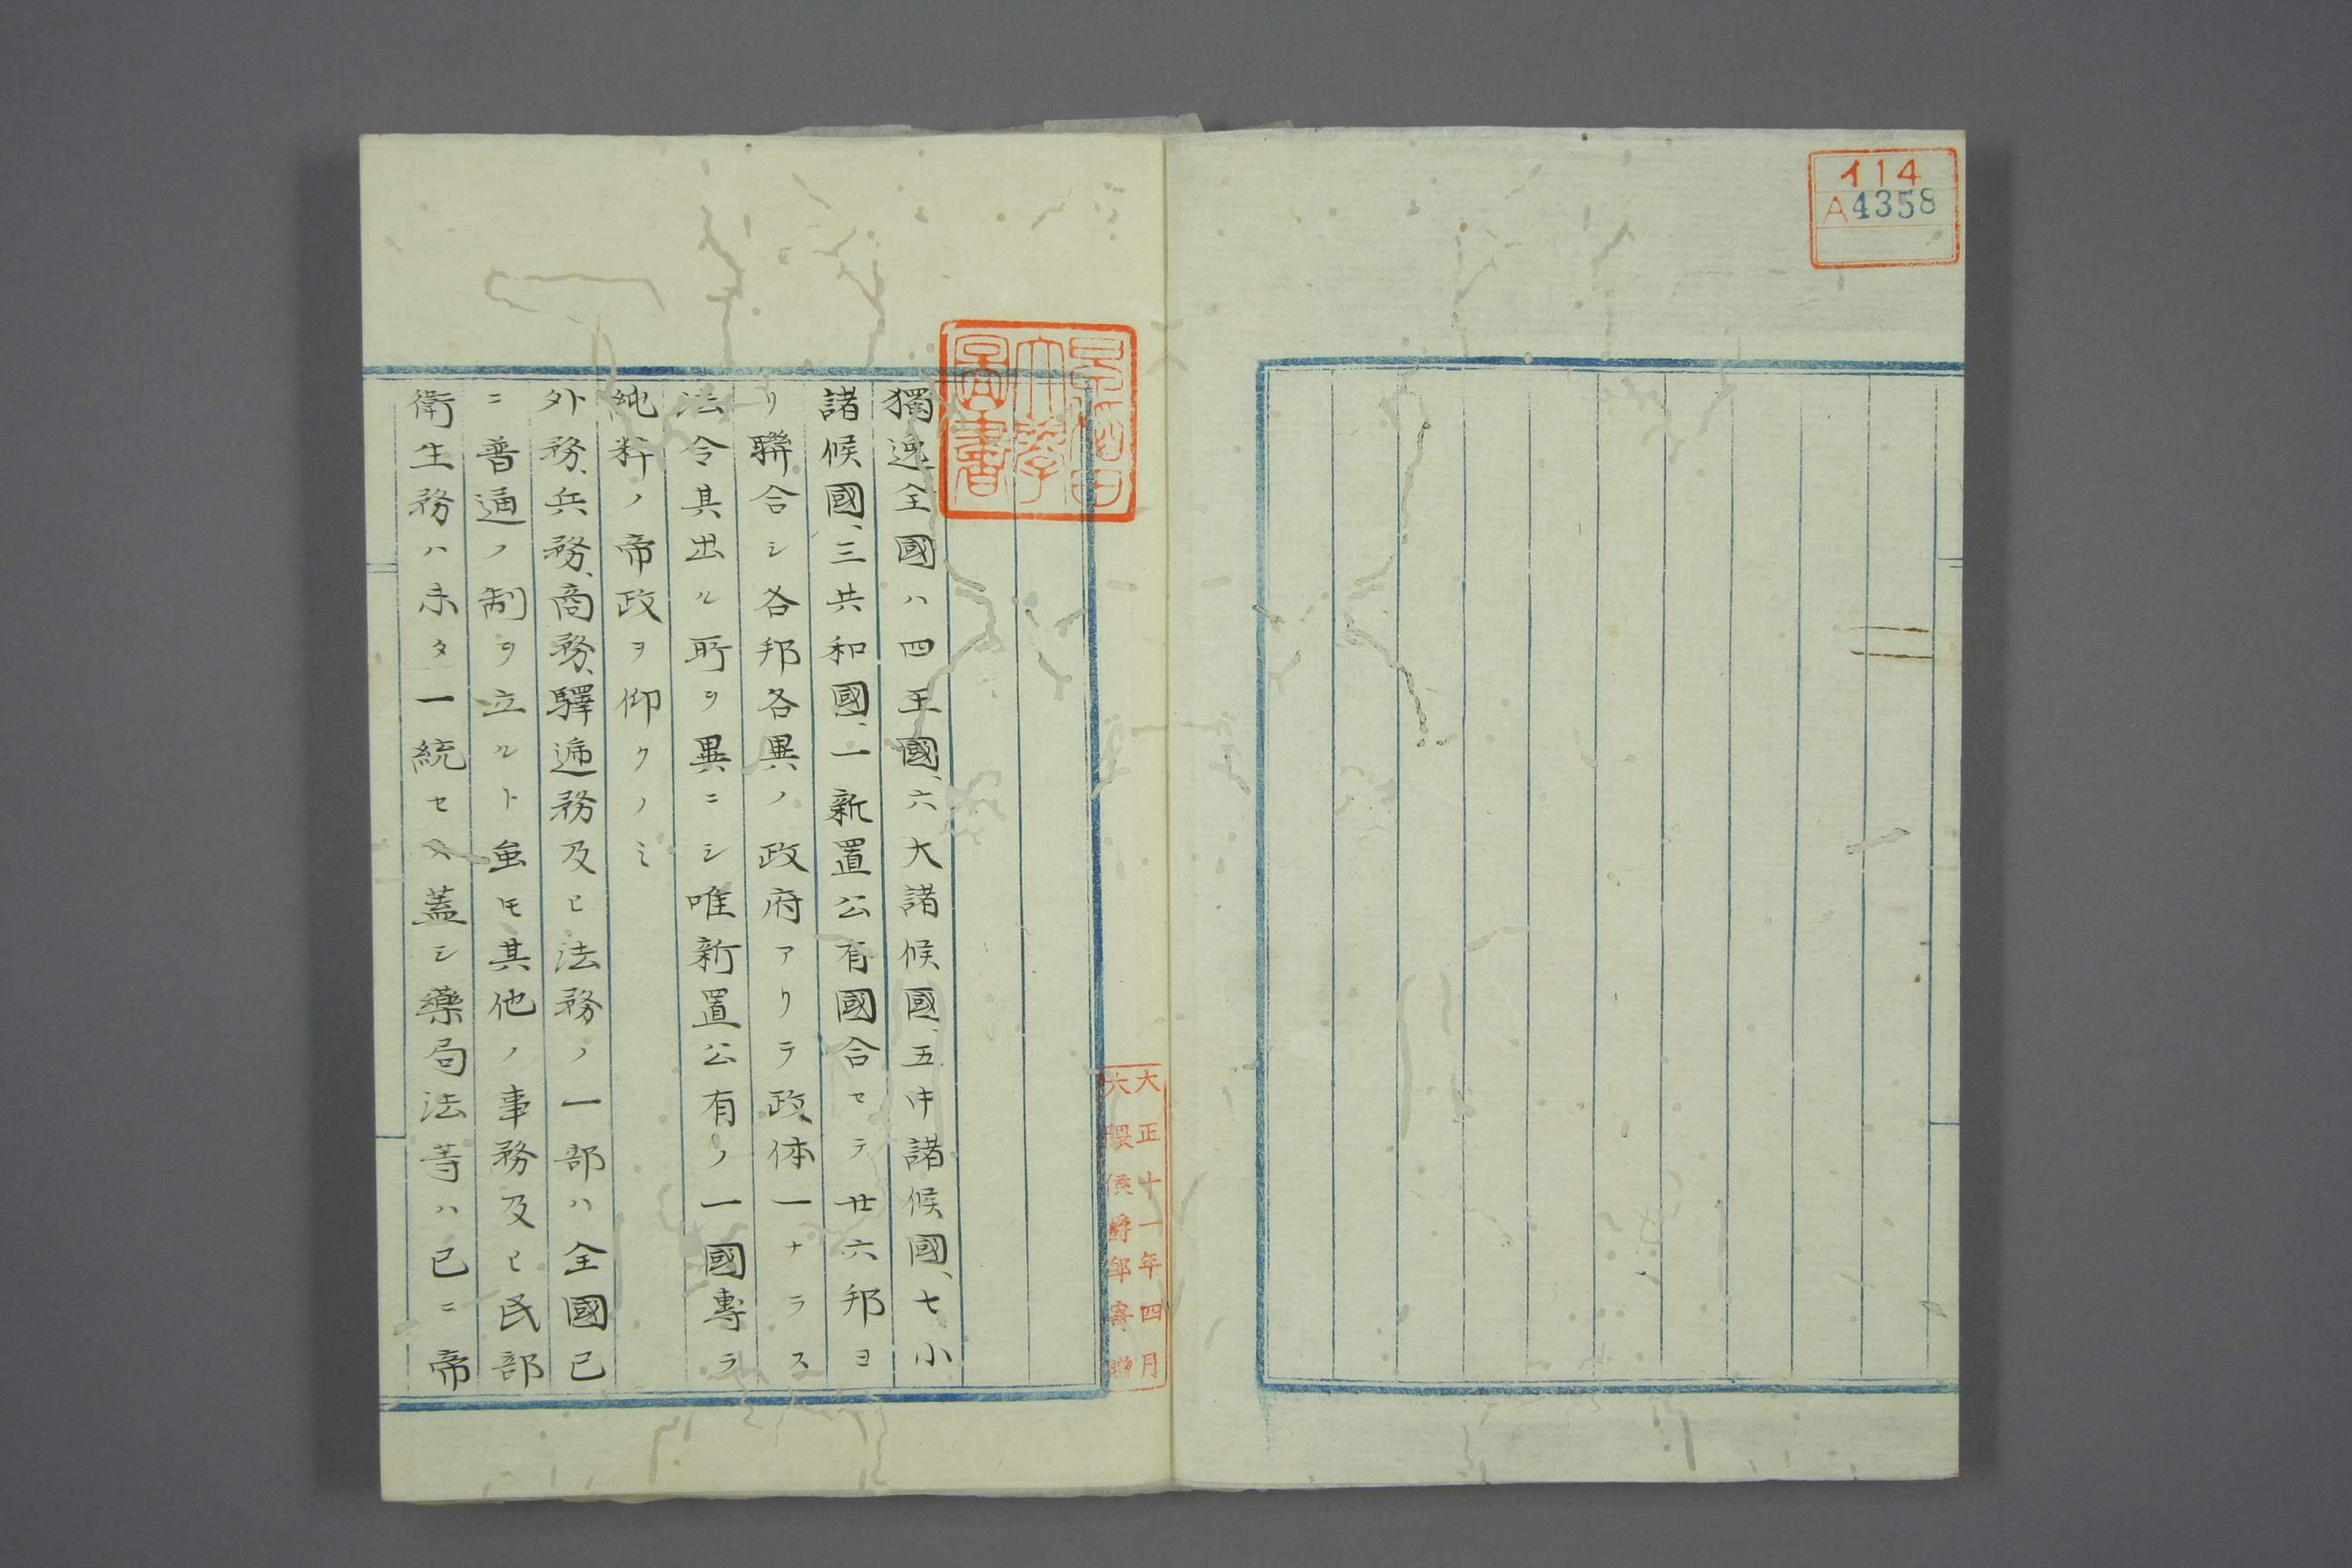 イ14
A4358
早稲田
大學
圖書
大正十一年四月
大隈侯爵邸寄贈
獨逸全國ハ四王國、六大諸候國、五中諸候國、七小
諸候國、三共和國、一新置公有國合セテ廿六邦ヨ
リ聯合シ各邦各異ノ政府アリテ政体一ナラス
法令其出ル所ヲ異ニシ唯新置公有ノ一國專ラ
純粹ノ帝政ヲ仰クノミ
外務、兵務、商務、驛逓務及ヒ法務ノ一部ハ全國已
ニ普通ノ制ヲ立ルト虽モ其他ノ事務及ヒ民部
衛生務ハ未タ一統セス蓋シ藥局法等ハ已ニ帝